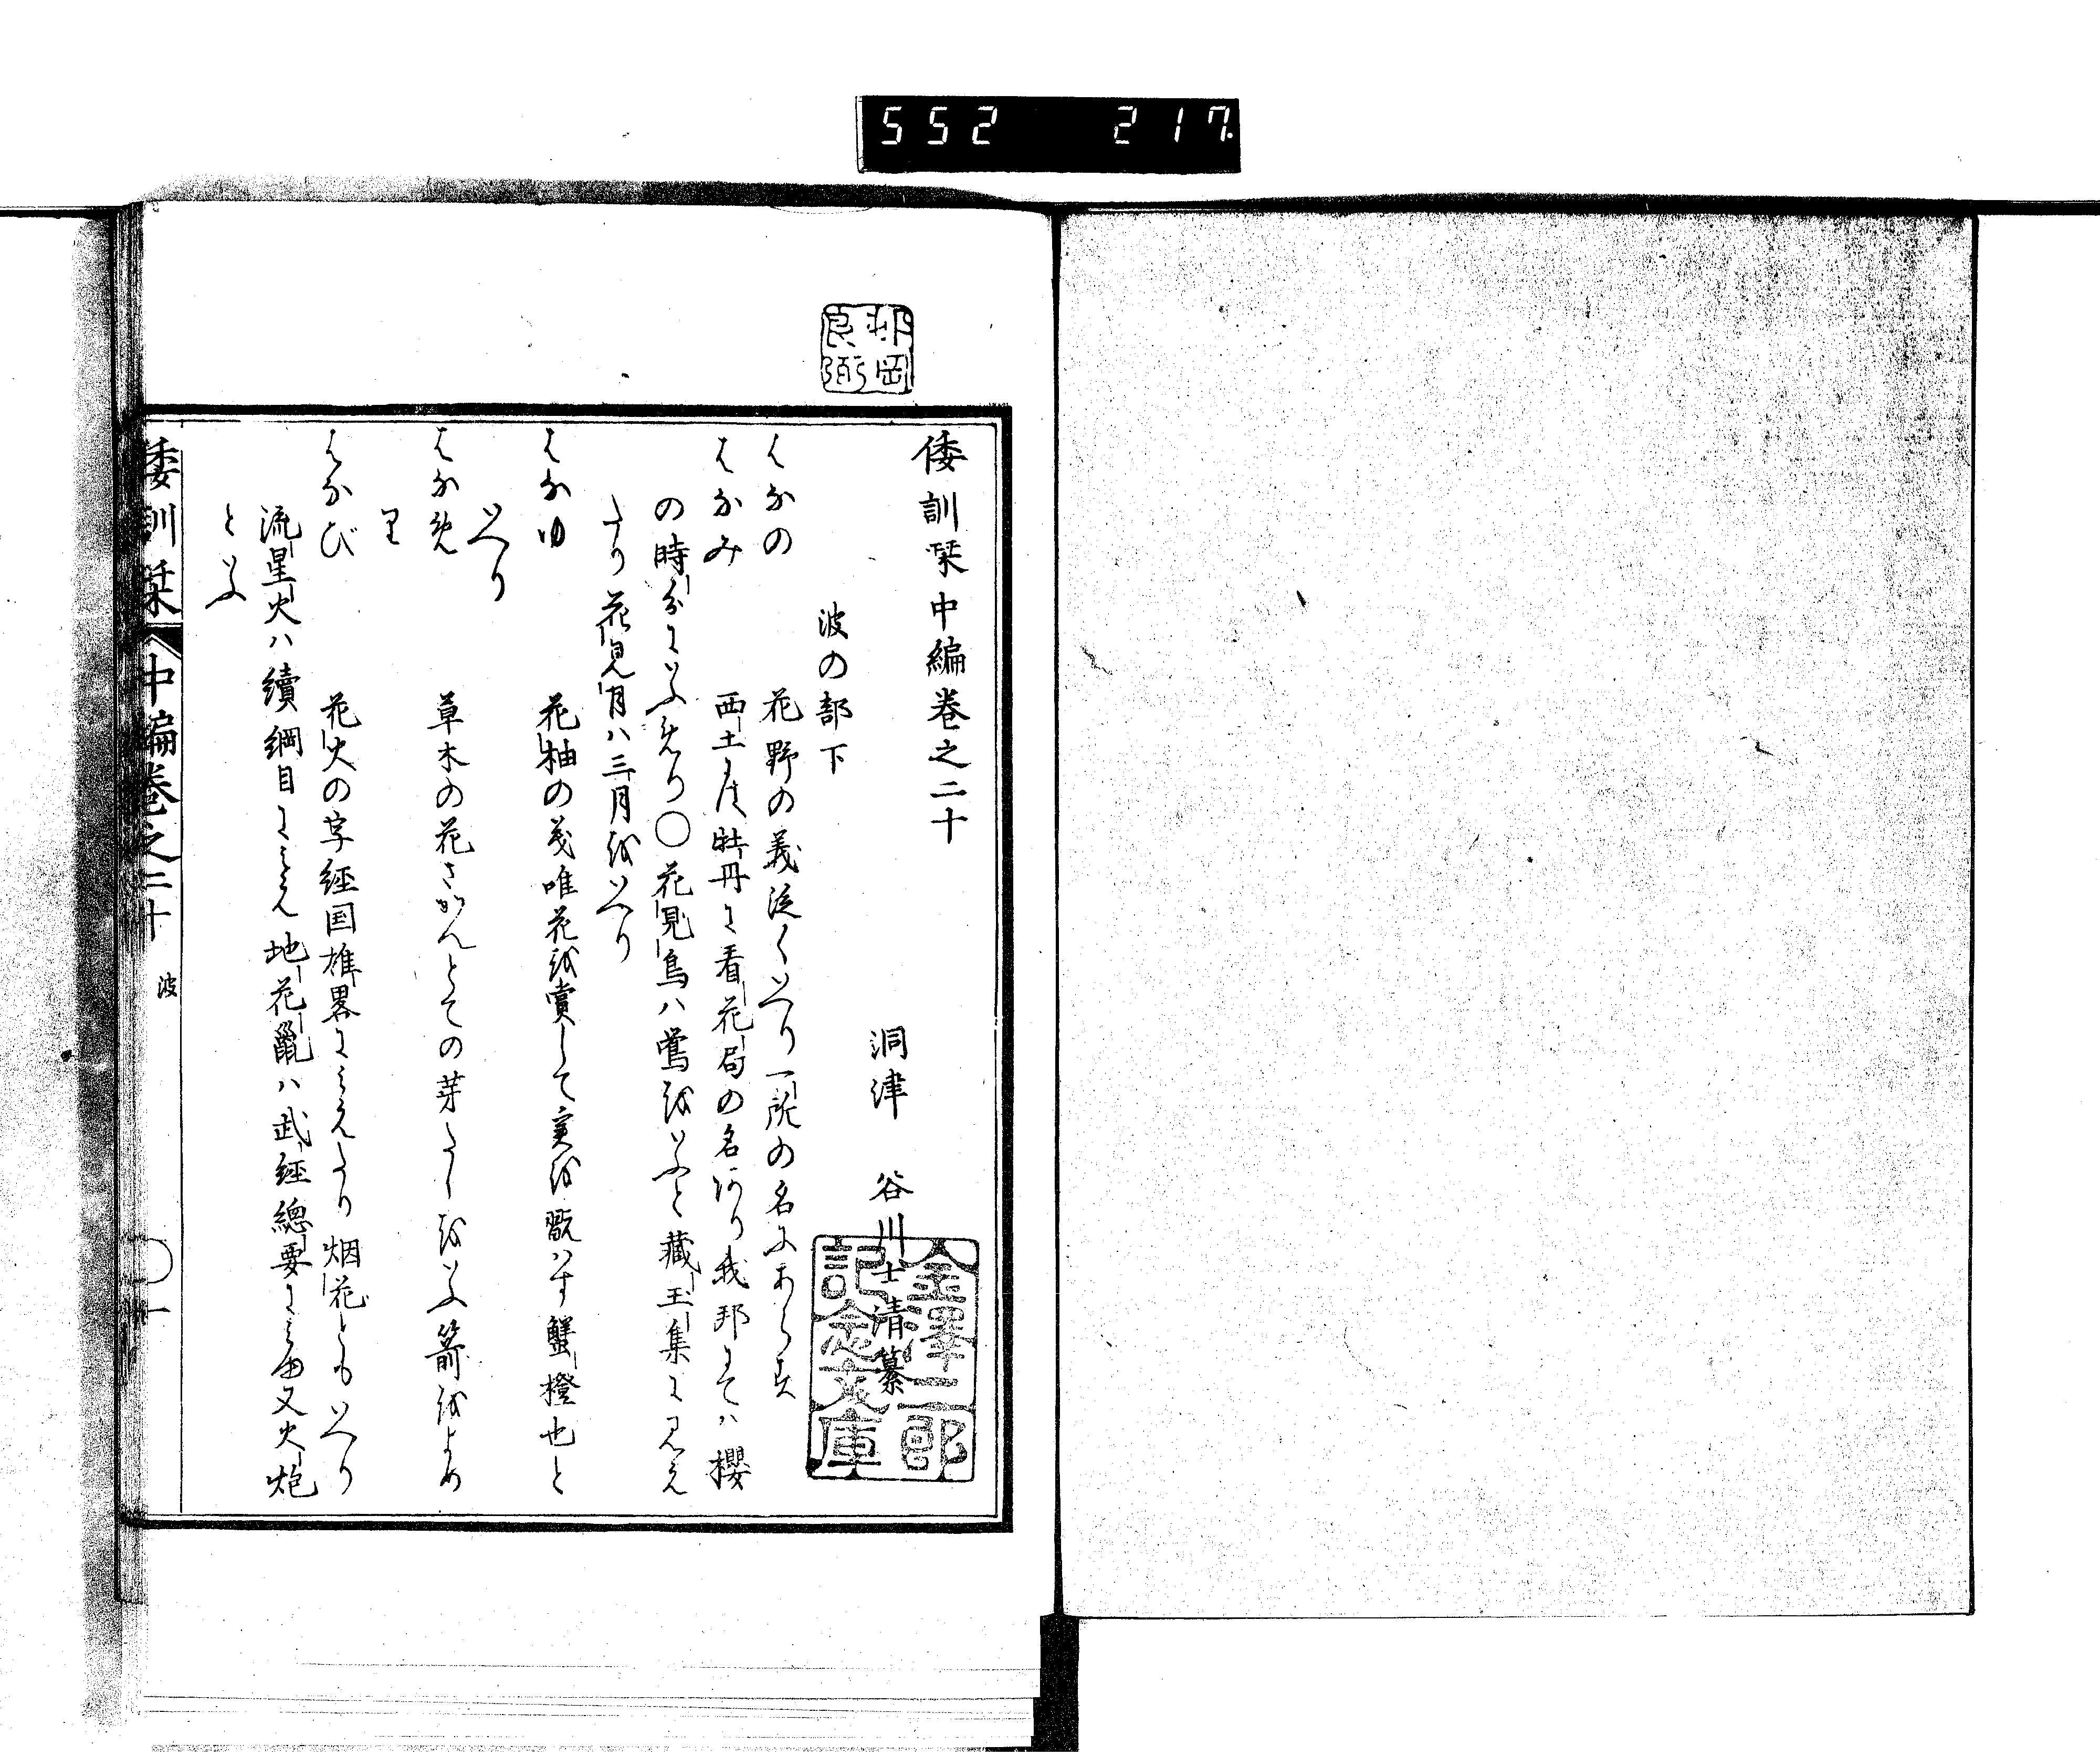 552 217
邨岡
良弼
倭訓栞中編巻之二十
洞津 谷川士清纂
金澤二郎
記念文庫
波の部下
はなの 花野の義淀くいへり一所の名にあらす
はなみ 西土には牡丹に看花局の名あり我邦にては櫻
の時分にいふめり〇花見鳥ハ鶯をいふと藏玉集に見え
たり花見月ハ三月をいへり
はなゆ 花柚の義唯花を賞して実を翫はす蟹橙也と
いへり
はなめ 草木の花さかんとての芽たしをいふ箭をよめ
り
はなび 花火の字経国雄畧にみえたり烟花ともいへり
流星火ハ續綱目にみえ地花鼠ハ武経總要にみゆ又火炮
といふ
倭訓栞 中編巻之二十 波 〇一